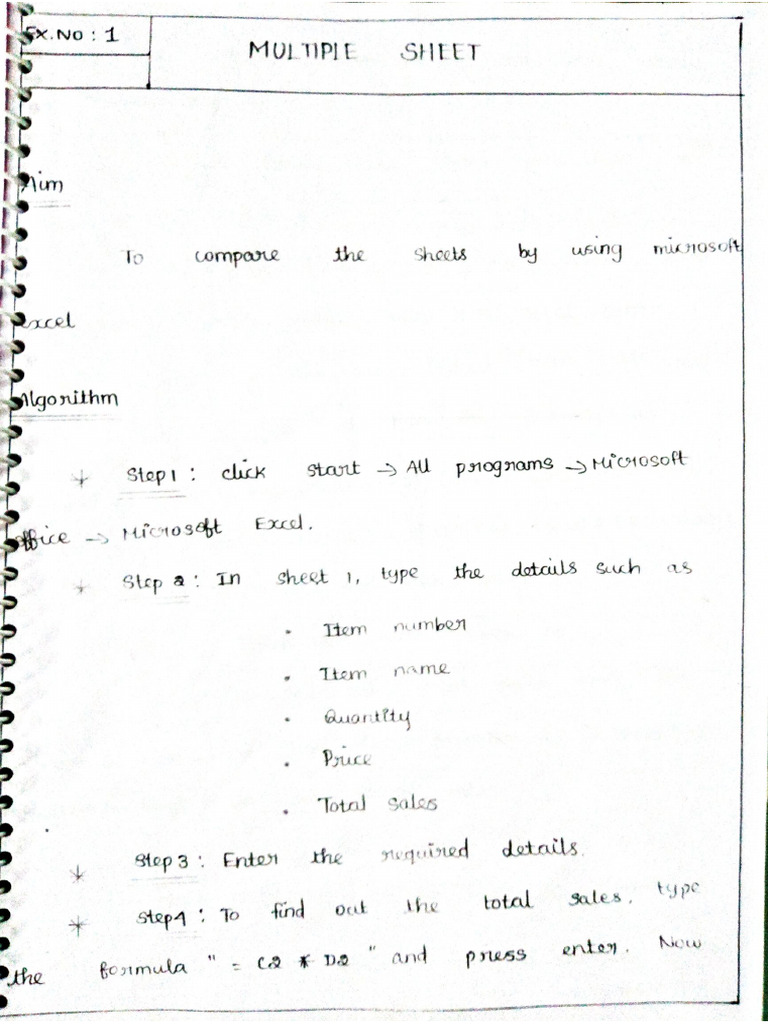 EX.NO : 1
MULTIPLE SHEET
Aim
To compare the sheets by using microsoft
excel
Algorithm
* Step 1 : click start → All programs → Microsoft
office → Microsoft Excel.
* Step 2 : In sheet 1, type the details such as
• Item number
• Item name
• Quantity
• Price
• Total sales
* Step 3 : Enter the required details.
* Step 4 : To find out the total sales, type
the formula " = C2 * D2 " and press enter. Now